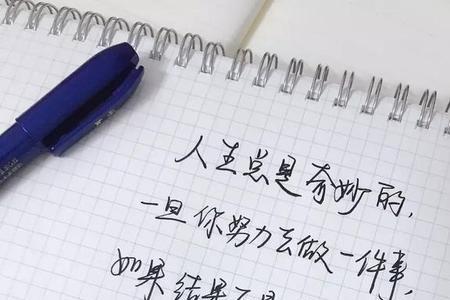 人生总是奇妙的，
一旦你努力去做一件事，
如果结果不是